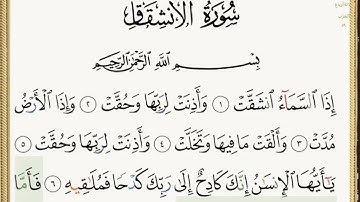 سُورَةُ الِانشِقَاقِ
بِسْمِ اللَّهِ الرَّحْمَٰنِ الرَّحِيمِ
إِذَا السَّمَآءُ انشَقَّتْ ١ وَأَذِنَتْ لِرَبِّهَا وَحُقَّتْ ٢ وَإِذَا الْأَرْضُ
مُدَّتْ ٣ وَأَلْقَتْ مَا فِيهَا وَتَخَلَّتْ ٤ وَأَذِنَتْ لِرَبِّهَا وَحُقَّتْ ٥
يَٰٓأَيُّهَا الْإِنسَٰنُ إِنَّكَ كَادِحٌ إِلَىٰ رَبِّكَ كَدْحًا فَمُلَٰقِيهِ ٦ فَأَمَّا